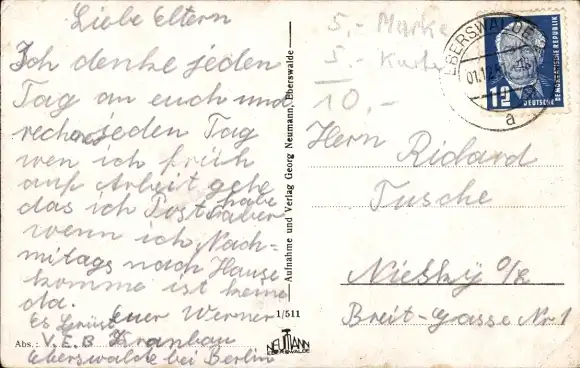 Liebe Eltern
Ich denke jeden
Tag an euch und
rechne jeden Tag
wen ich früh
auf Arbeit gehe
das ich Post habe aber
wenn ich Nach-
mitags nach Hause
komme ist keine
da.
Es Grüst euer Werner
Abs.: V.E.B Kranbau
Eberswalde bei Berlin
Aufnahme und Verlag Georg Neumann, Eberswalde
1/511
NEUMANN
EBERSWALDE
5,- Marke
5,- Karte
10,-
EBERSWALDE
01.12.
a
12
DEUTSCHE
DEMOKRATISCHE REPUBLIK
Herrn Richard
Tusche
Niesky O/L
Breit-Gasse Nr 1